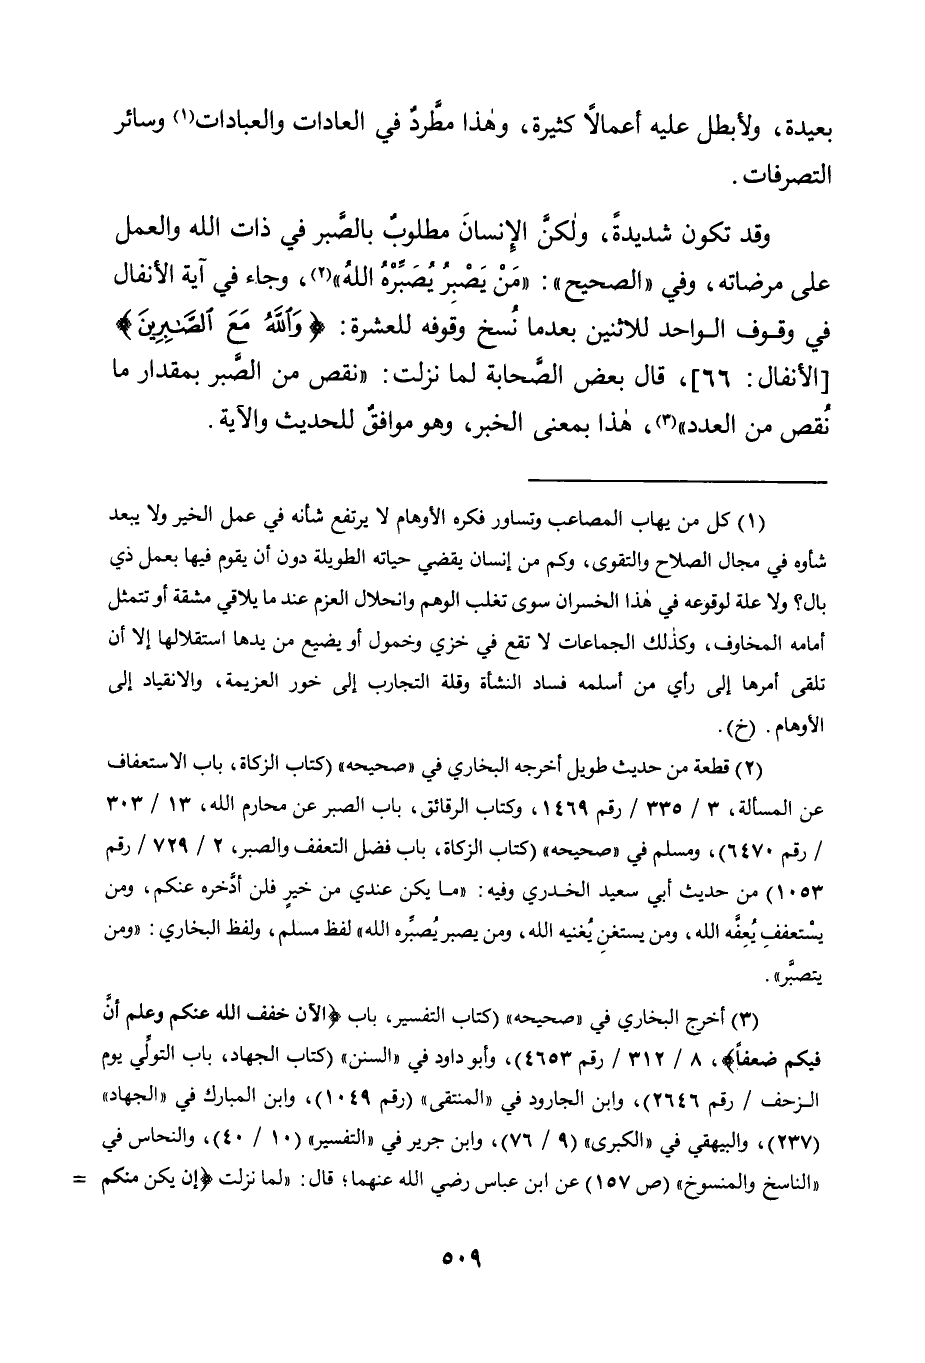 بعيدة، ولأبطل عليه أعمالاً كثيرة، وهٰذا مطَّردٌ في العادات والعبادات(١) وسائر
التصرفات.
وقد تكون شديدةً، ولٰكنَّ الإنسانَ مطلوبٌ بالصَّبر في ذات الله والعمل
على مرضاته، وفي «الصحيح»: «مَنْ يَصْبِرُ يُصَبِّرْهُ اللهُ»(٢)، وجاء في آية الأنفال
في وقوف الواحد للاثنين بعدما نُسخ وقوفه للعشرة: ﴿وَٱللَّهُ مَعَ ٱلصَّـٰبِرِينَ﴾
[الأنفال: ٦٦]، قال بعض الصَّحابة لما نزلت: «نقص من الصَّبر بمقدار ما
نُقص من العدد»(٣)، هٰذا بمعنى الخبر، وهو موافقٌ للحديث والآية.
(١) كل من يهاب المصاعب وتساور فكره الأوهام لا يرتفع شأنه في عمل الخير ولا يبعد
شأوه في مجال الصلاح والتقوى، وكم من إنسان يقضي حياته الطويلة دون أن يقوم فيها بعمل ذي
بال؟ ولا علة لوقوعه في هٰذا الخسران سوى تغلب الوهم وانحلال العزم عند ما يلاقي مشقة أو تتمثل
أمامه المخاوف، وكذٰلك الجماعات لا تقع في خزي وخمول أو يضيع من يدها استقلالها إلا أن
تلقى أمرها إلى رأي من أسلمه فساد النشأة وقلة التجارب إلى خور العزيمة، والانقياد إلى
الأوهام. (خ).
(٢) قطعة من حديث طويل أخرجه البخاري في «صحيحه» (كتاب الزكاة، باب الاستعفاف
عن المسألة، ٣ / ٣٣٥ / رقم ١٤٦٩، وكتاب الرقائق، باب الصبر عن محارم الله، ١٣ / ٣٠٣
/ رقم ٦٤٧٠)، ومسلم في «صحيحه» (كتاب الزكاة، باب فضل التعفف والصبر، ٢ / ٧٢٩ / رقم
١٠٥٣) من حديث أبي سعيد الخدري وفيه: «ما يكن عندي من خيرٍ فلن أدَّخره عنكم، ومن
يسْتعففِ يُعِفَّه الله، ومن يستغنِ يُغنيه الله، ومن يصبر يُصبِّره الله» لفظ مسلم، ولفظ البخاري: «ومن
يتصبَّر».
(٣) أخرج البخاري في «صحيحه» (كتاب التفسير، باب ﴿الآن خفف الله عنكم وعلم أنَّ
فيكم ضعفاً﴾، ٨ / ٣١٢ / رقم ٤٦٥٣)، وأبو داود في «السنن» (كتاب الجهاد، باب التولِّي يوم
الزحف / رقم ٢٦٤٦)، وابن الجارود في «المنتقى» (رقم ١٠٤٩)، وابن المبارك في «الجهاد»
(٢٣٧)، والبيهقي في «الكبرى» (٩ / ٧٦)، وابن جرير في «التفسير» (١٠ / ٤٠)، والنحاس في
«الناسخ والمنسوخ» (ص ١٥٧) عن ابن عباس رضي الله عنهما؛ قال: «لما نزلت ﴿إن يكن منكم =
٥٠٩